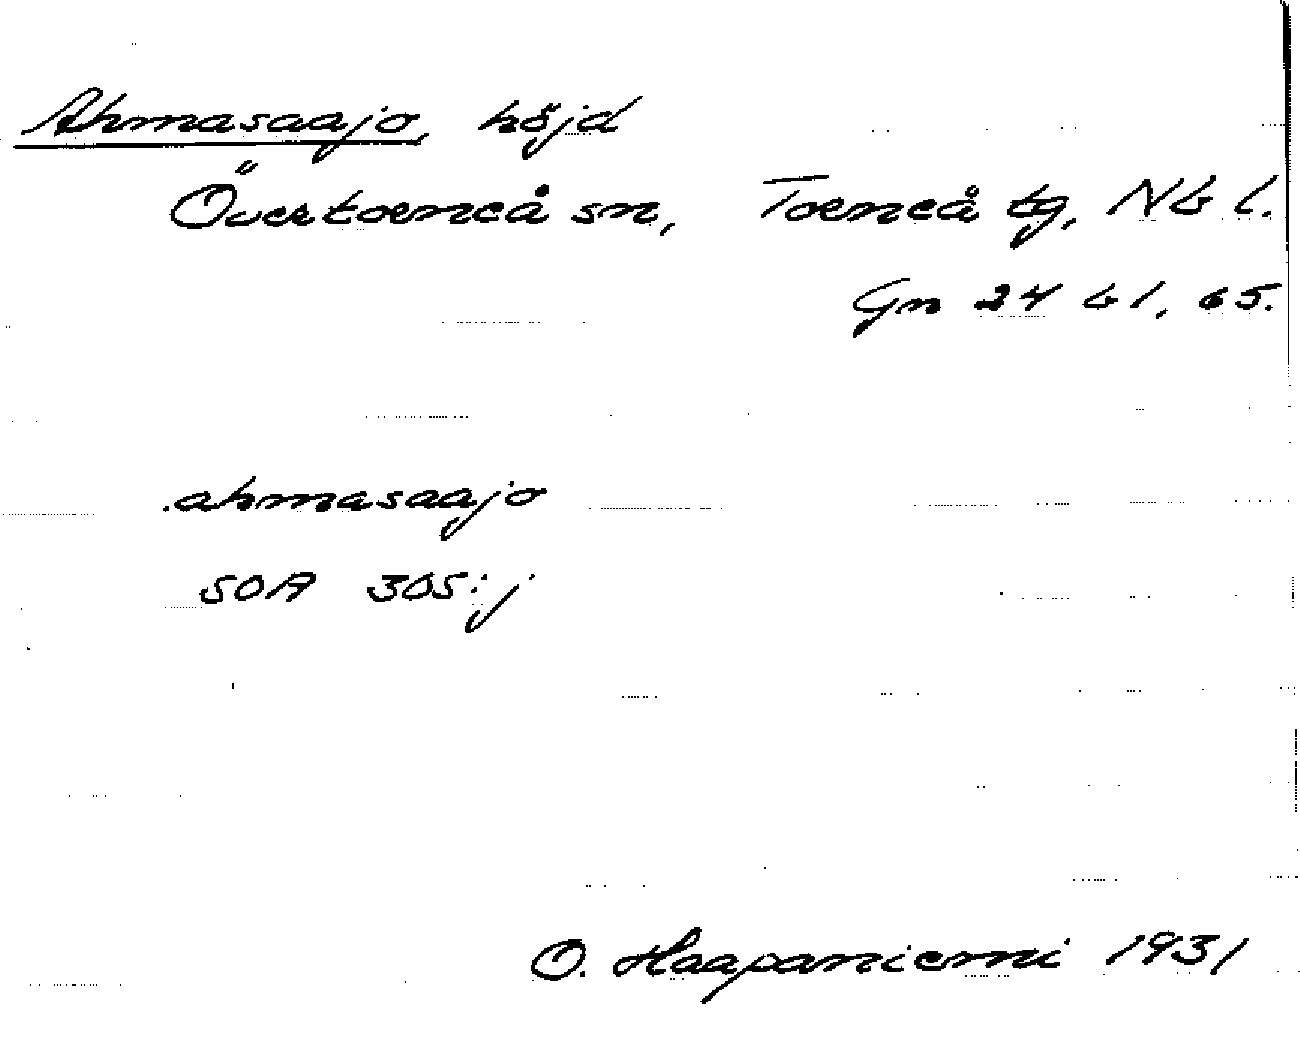 Ahmasaajo, höjd
Övertorneå sn, Torneå tg, Nb l.
Gn 24 b1, 65.
.ahmasaajo
SOA 305:j
O. Haapaniemi 1931